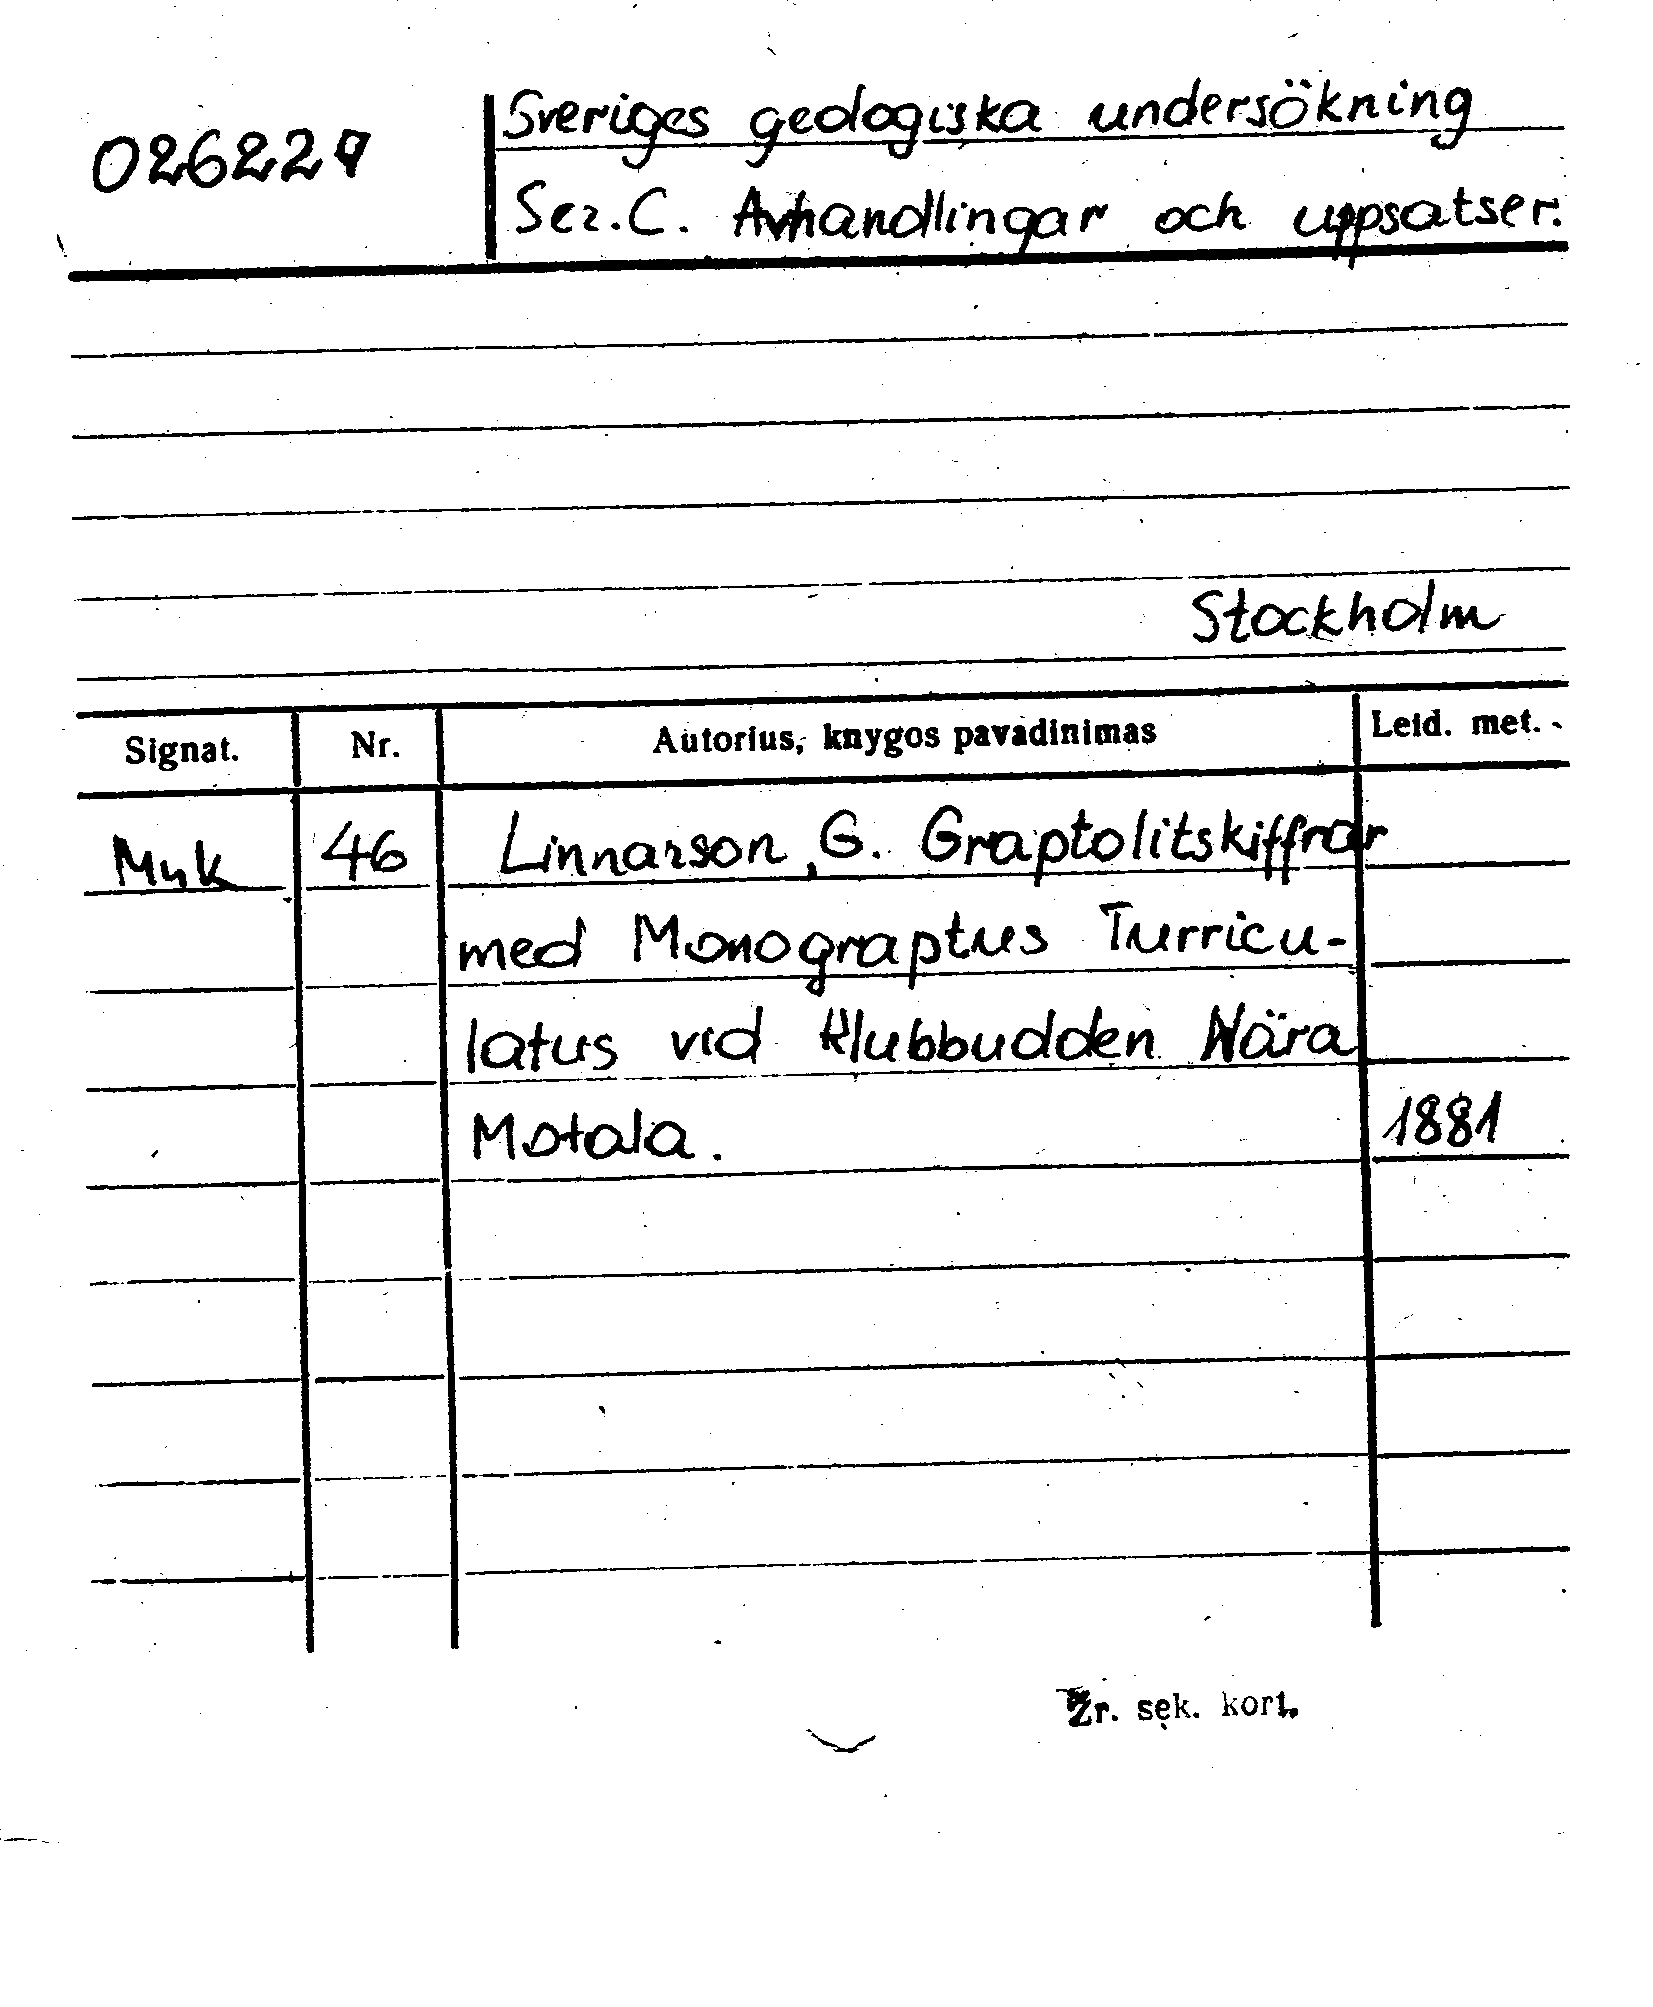 Sveriges geologiska undersökning
Ser. C. Avhandlingar och uppsatser.
Stockholm
Signat. Nr. Autorius, knygos pavadinimas Leid. met.
Mnk 46 Linnarson, G. Graptolitskiffrar
med Monograptus Turricu-
latus vid Klubbudden Nära
Motala. 1881
Žr. sek. kort.